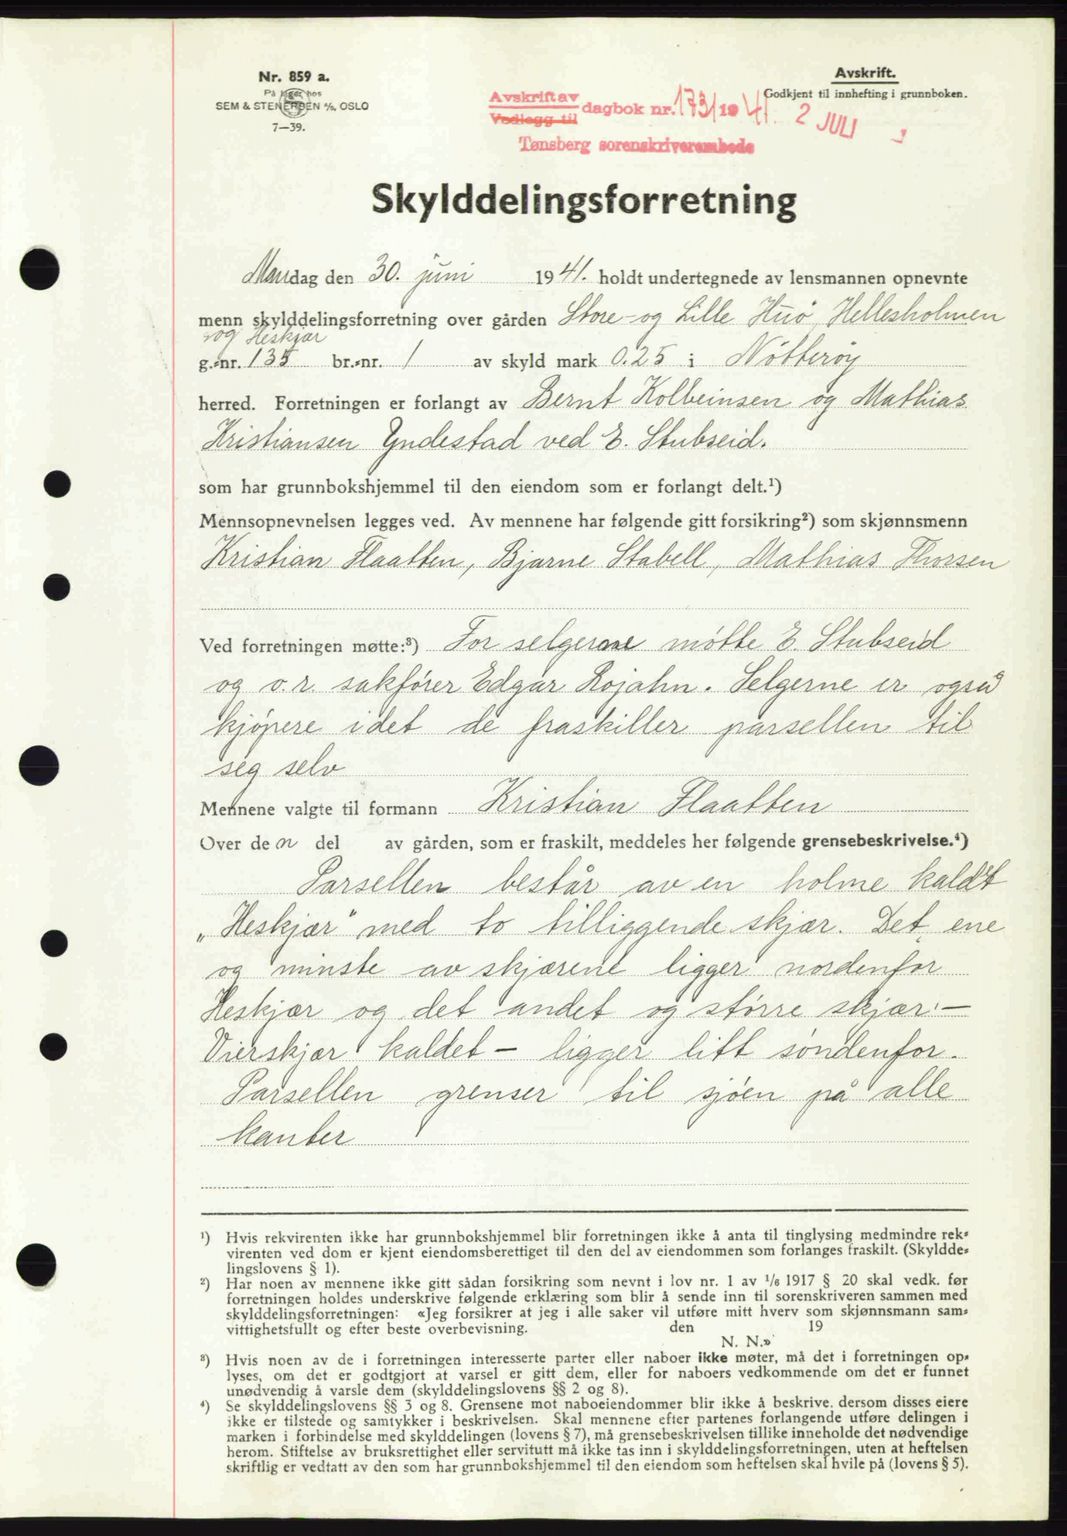 Nr. 859 a.
På lager hos
SEM & STENERSEN A/S, OSLO
7—39.
Avskrift av
Vedlegg til
dagbok nr. 1731 19 41. 2 JULI
Tønsberg sorenskriverembede
Avskrift.
Godkjent til innhefting i grunnboken.
Skylddelingsforretning
Mandag den 30. juni 19 41. holdt undertegnede av lensmannen opnevnte
menn skylddelingsforretning over gården Store- og Lille Huø, Hellesholmen
og Heskjær
g.-nr. 135 br.-nr. 1 av skyld mark 0.25 i Nötterøy
herred. Forretningen er forlangt av Bernt Kolbeinsen og Mathias
Kristiansen Yndestad ved E. Stubseid.
som har grunnbokshjemmel til den eiendom som er forlangt delt.¹)
Mennsopnevnelsen legges ved. Av mennene har følgende gitt forsikring²) som skjønnsmenn
Kristian Flaatten, Bjarne Stabell, Mathias Thorsen
Ved forretningen møtte:³) For selgerne møtte E. Stubseid
og o.r. sakfører Edgar Rojahn. Selgerne er også
kjøpere idet de fraskiller parsellen til
seg selv
Mennene valgte til formann Kristian Flaatten
Over den del av gården, som er fraskilt, meddeles her følgende grensebeskrivelse.⁴)
Parsellen består av en holme kaldt
„Heskjær" med to tilliggende skjær. Det ene
og minste av skjærene ligger nordenfor
Heskjær og det andet og större skjær —
Vierskjær kaldet — ligger litt søndenfor.
Parsellen grenser til sjøen på alle
kanter
¹) Hvis rekvirenten ikke har grunnbokshjemmel blir forretningen ikke å anta til tinglysing medmindre rek-
virenten ved dom er kjent eiendomsberettiget til den del av eiendommen som forlanges fraskilt. (Skyldde-
lingslovens § 1).
²) Har noen av mennene ikke gitt sådan forsikring som nevnt i lov nr. 1 av 1/6 1917 § 20 skal vedk. før
forretningen holdes underskrive følgende erklæring som blir å sende inn til sorenskriveren sammen med
skylddelingsforretningen: «Jeg forsikrer at jeg i alle saker vil utføre mitt hverv som skjønnsmann sam-
vittighetsfullt og efter beste overbevisning. den 19
N. N.»
³) Hvis noen av de i forretningen interesserte parter eller naboer ikke møter, må det i forretningen op-
lyses, om det er godtgjort at varsel er gitt dem, eller for naboers vedkommende om det er funnet
unødvendig å varsle dem (skylddelingslovens §§ 2 og 8).
⁴) Se skylddelingslovens §§ 3 og 8. Grensene mot naboeiendommer blir ikke å beskrive, dersom disses eiere
ikke er tilstede og samtykker i beskrivelsen. Skal mennene efter partenes forlangende utføre delingen i
marken i forbindelse med skylddelingen (lovens § 7), må grensebeskrivelsen tillike inneholde det nødvendige
herom. Stiftelse av bruksrettighet eller servitutt må ikke tas inn i skylddelingsforretningen, uten at heftelsen
skriftlig er vedtatt av den som har grunnbokshjemmel til den eiendom som heftelsen skal hvile på (lovens § 5).